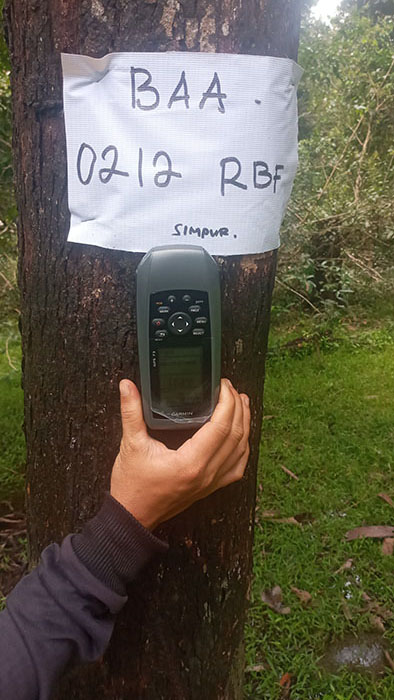 BAA.
0212 RBF
SIMPUR.
GARMIN